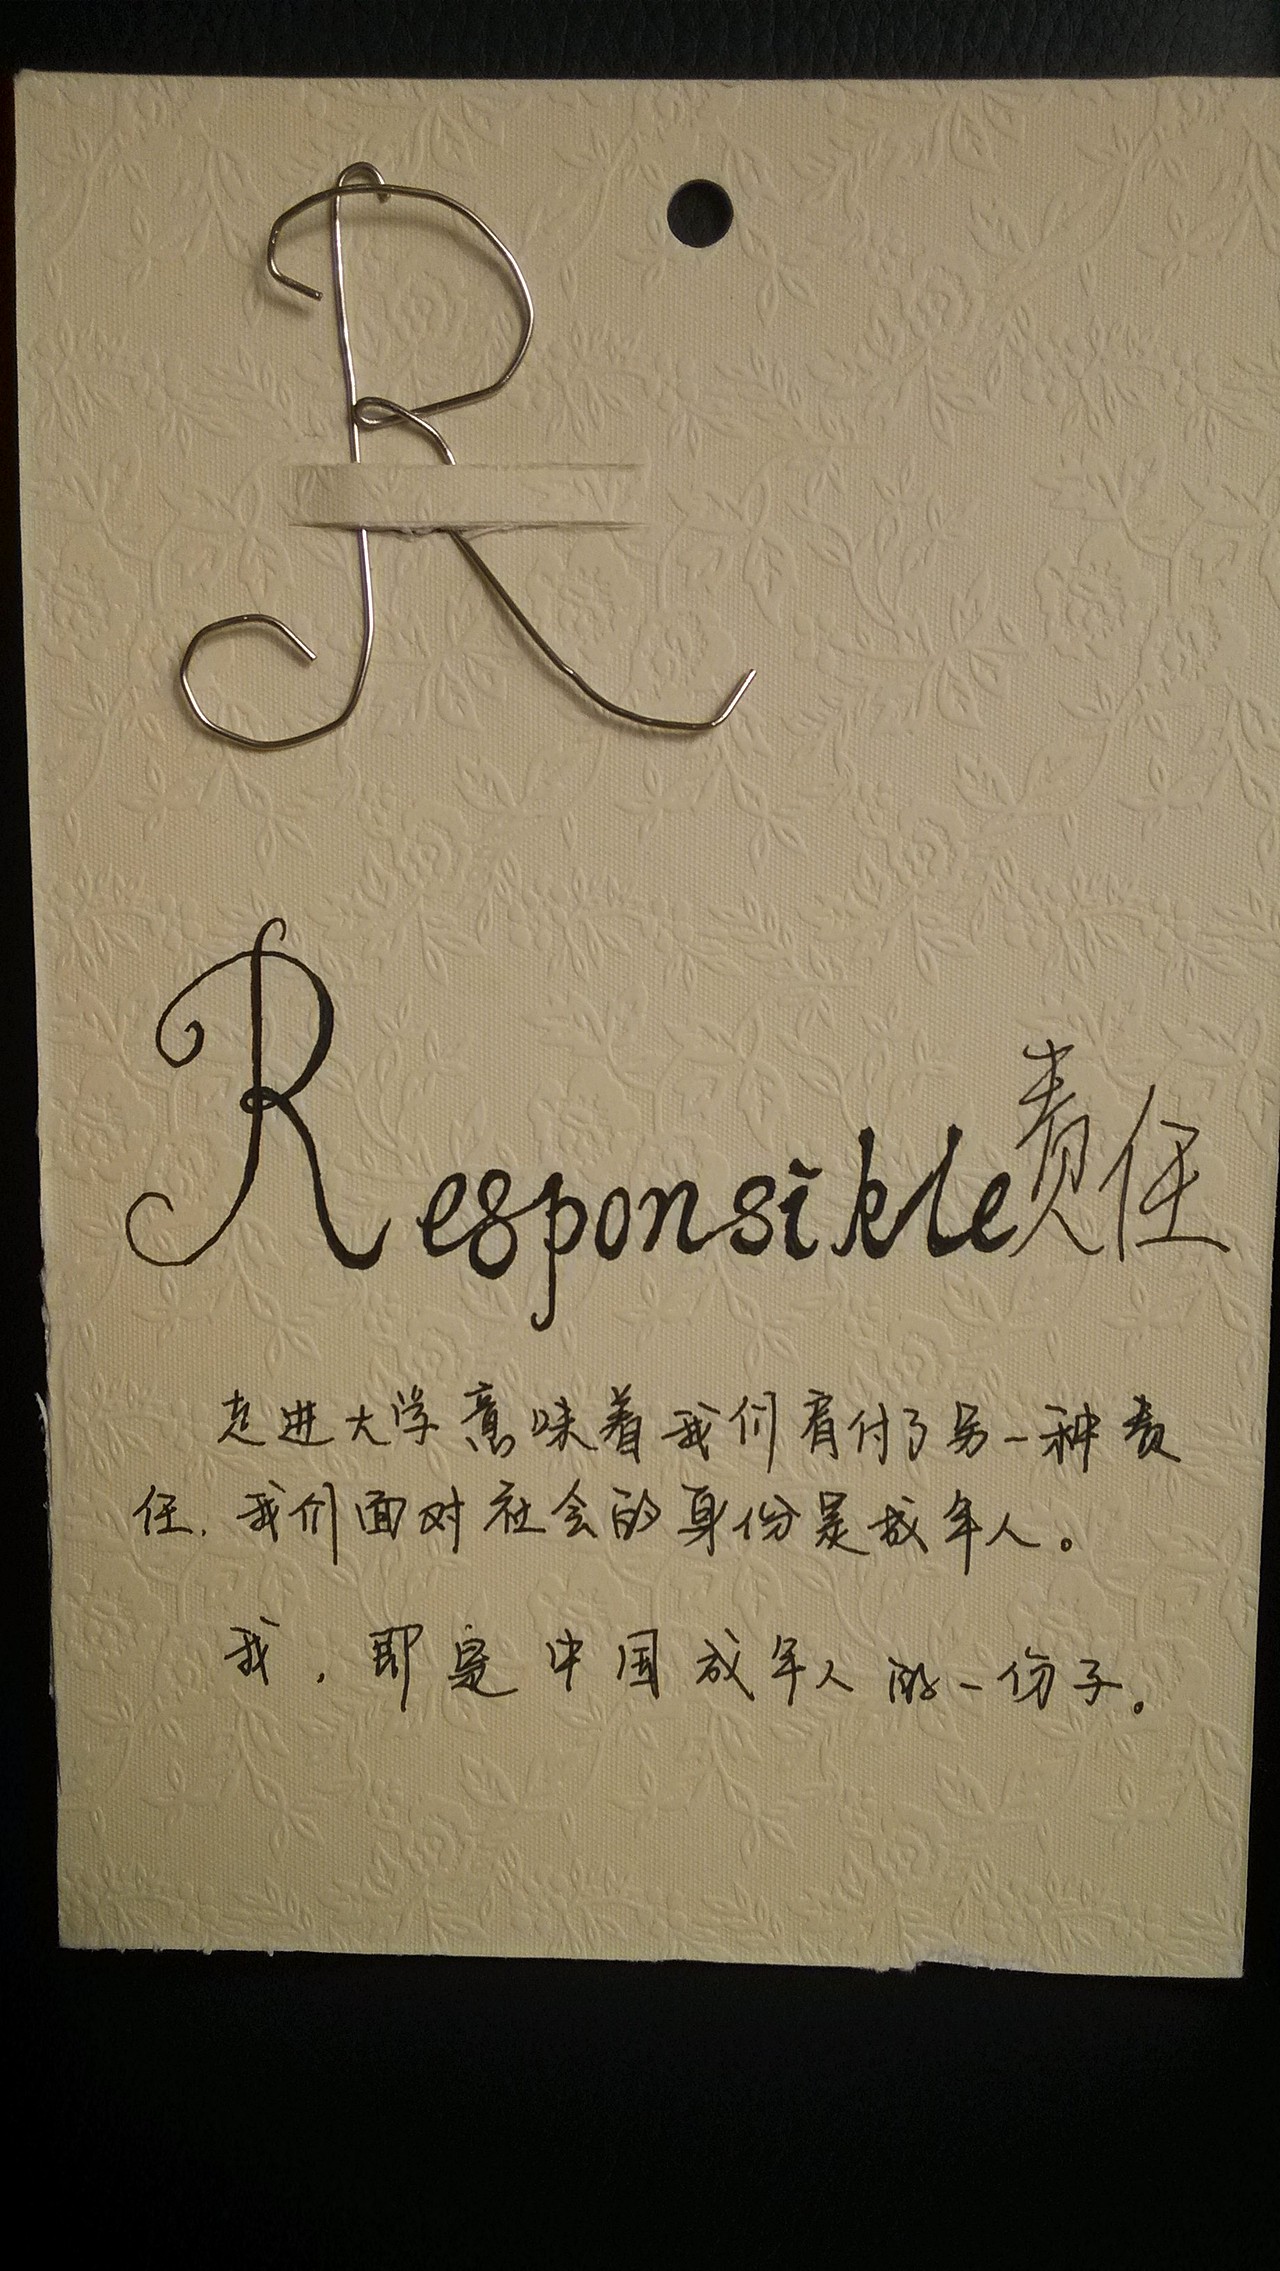 R
Responsible责任
走进大学意味着我们肩付了另一种责
任.我们面对社会的身份是成年人。
我，即是中国成年人的一份子。